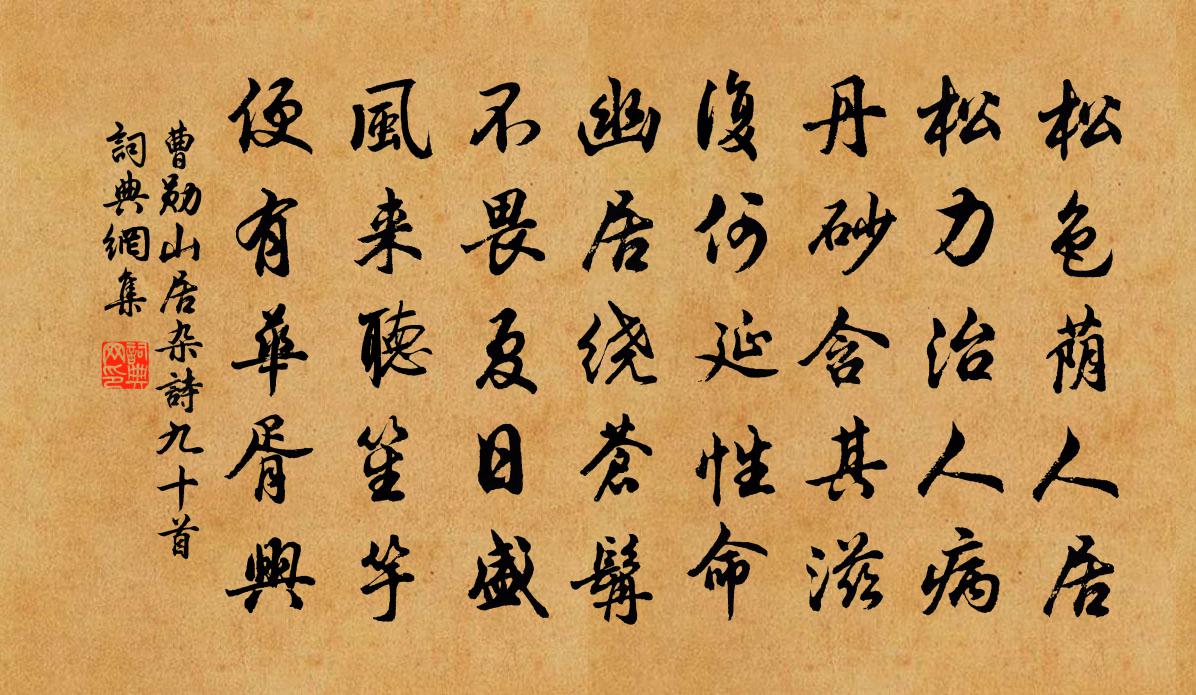 松色荫人居
松力治人病
丹砂含其滋
復何延性命
幽居绕蒼髯
不畏夏日盛
風来聽笙竽
便有華胥興
曹勛山居杂詩九十首
詞典網集
詞典網印